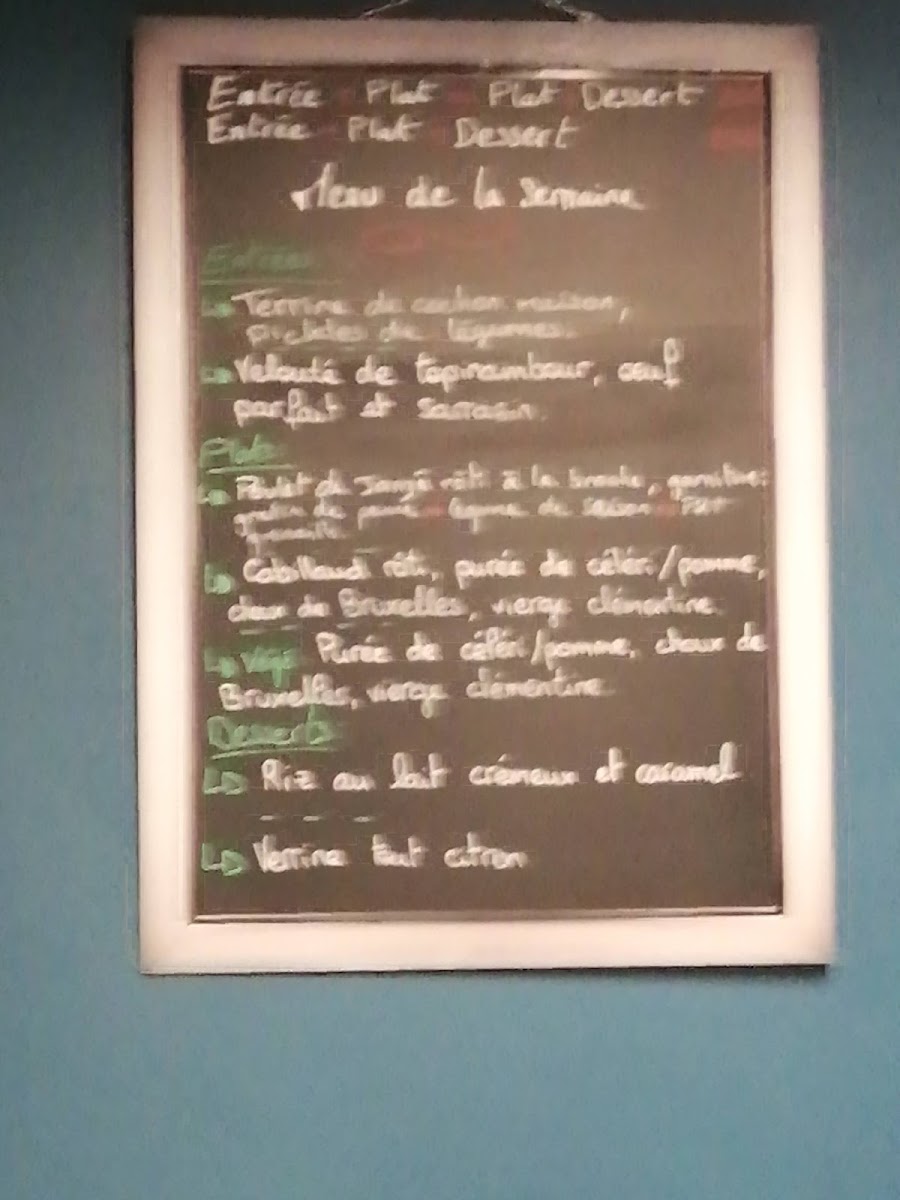 Entrée Plat Plat Dessert
Entrée Plat Dessert
Menu de la Semaine
Entrées
Terrine de cochon maison,
pickles de légumes.
Velouté de topinambour, oeuf
parfait et Sarrasin.
Plats
Poulet de rôti à la broche, garniture:
légume de saison
Cabillaud rôti, purée de céleri/pomme,
choux de Bruxelles, vierge clémentine.
Végé Purée de céleri/pomme, choux de
Bruxelles, vierge clémentine
Desserts
Riz au lait crémeux et caramel
Verrine tout citron